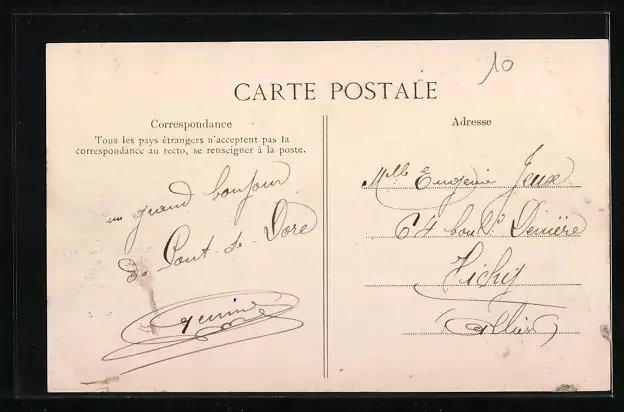 10
CARTE POSTALE
Correspondance
Tous les pays étrangers n'acceptent pas la
correspondance au recto, se renseigner à la poste.
un grand bonjour
De Pont-de-Dore
Adresse
Mlle Eugenie
64 boul.
Vichy
Allier